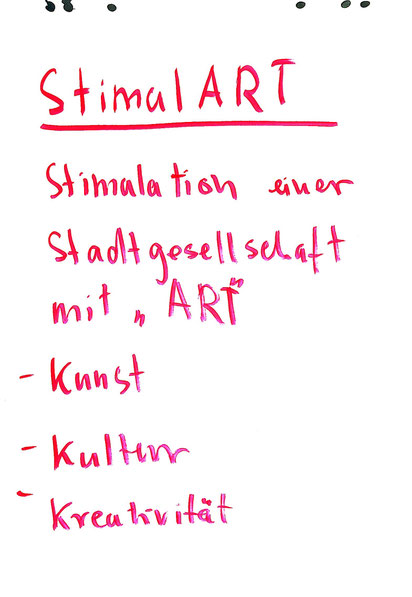 StimulART
Stimulation einer
Stadtgesellschaft
mit „ART"
- Kunst
- Kultur
- Kreativität